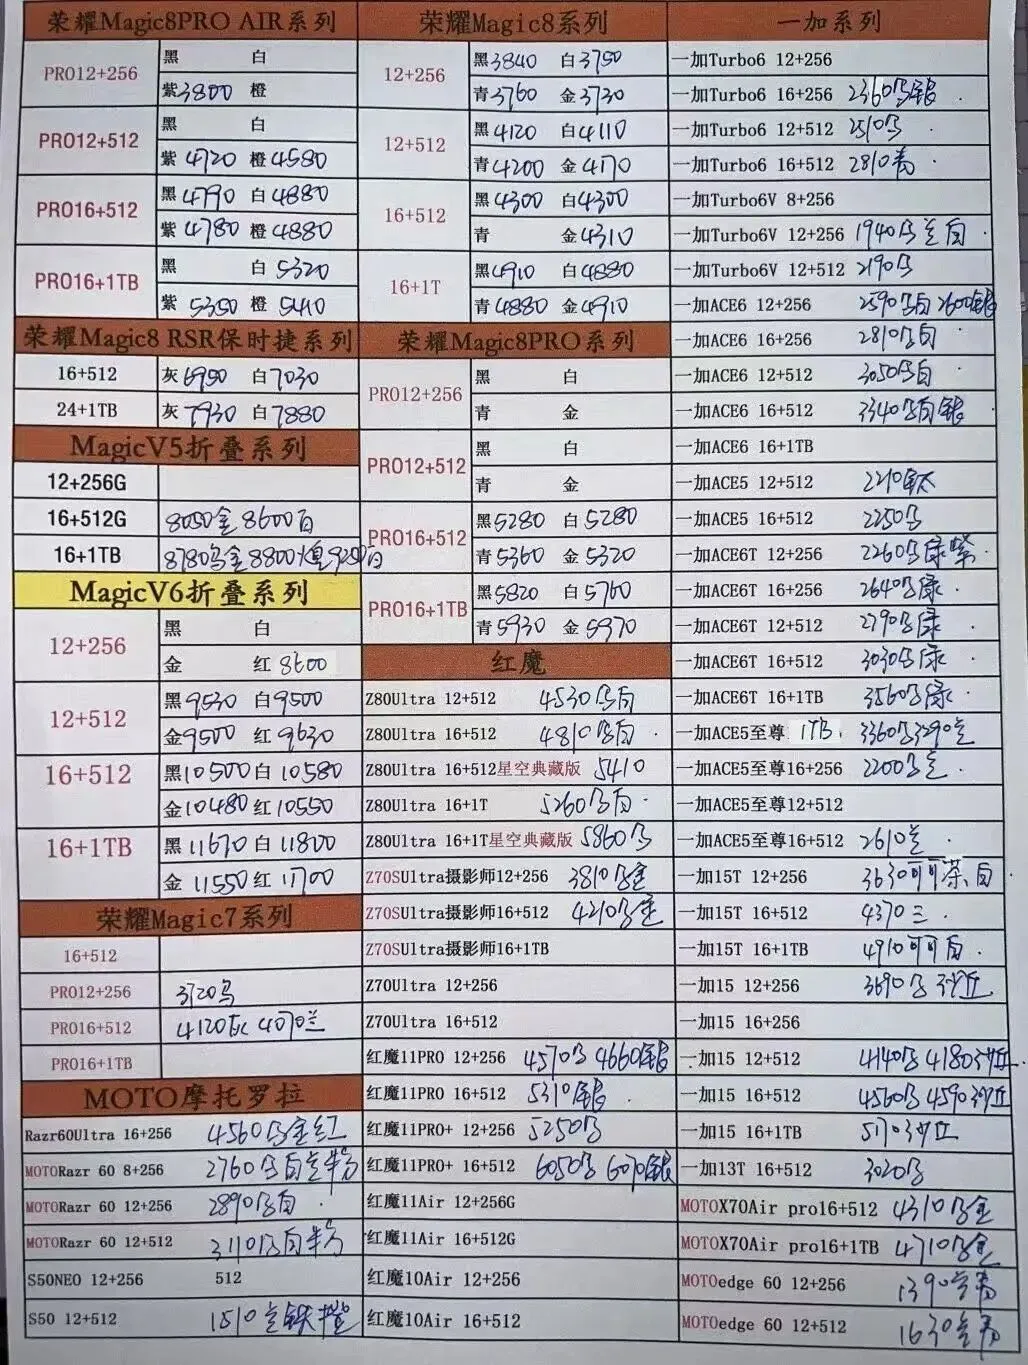 荣耀Magic8PRO AIR系列
PRO12+256
黑 白
紫3800 橙
PRO12+512
黑 白
紫 4720 橙 4580
PRO16+512
黑 4790 白 4880
紫 4780 橙 4880
PRO16+1TB
黑 白 5320
紫 5350 橙 5410
荣耀Magic8 RSR保时捷系列
16+512 灰 6950 白 7030
24+1TB 灰 7930 白 7880
MagicV5折叠系列
12+256G
16+512G 8050金 8600白
16+1TB 8780乌金 8800 白
MagicV6折叠系列
12+256
黑 白
金 红 8600
12+512
黑 9530 白 9500
金 9500 红 9630
16+512
黑 10500 白 10580
金 10480 红 10550
16+1TB
黑 11670 白 11800
金 11550 红 11700
荣耀Magic7系列
16+512
PRO12+256 3720乌
PRO16+512 4120灰 4070兰
PRO16+1TB
MOTO摩托罗拉
Razr60Ultra 16+256 4560乌金红
MOTORazr 60 8+256 2760乌白兰
MOTORazr 60 12+256 2890乌白
MOTORazr 60 12+512 3110乌白
S50NEO 12+256 512
S50 12+512 1510兰
荣耀Magic8系列
12+256
黑3840 白3750
青3760 金3730
12+512
黑4120 白4110
青4200 金4170
16+512
黑4300 白4300
青 金4310
16+1T
黑4910 白4880
青4880 金4910
荣耀Magic8PRO系列
PRO12+256
黑 白
青 金
PRO12+512
黑 白
青 金
PRO16+512
黑5280 白5280
青5360 金5320
PRO16+1TB
黑5820 白5760
青5930 金5970
红魔
Z80Ultra 12+512 4530乌白
Z80Ultra 16+512 4810乌白
Z80Ultra 16+512星空典藏版 5410
Z80Ultra 16+1T 5260乌白
Z80Ultra 16+1T星空典藏版 5860乌
Z70SUltra摄影师12+256 3810乌金
Z70SUltra摄影师16+512 4210乌金
Z70SUltra摄影师16+1TB
Z70Ultra 12+256
Z70Ultra 16+512
红魔11PRO 12+256 4570乌 4660银
红魔11PRO 16+512 5310银
红魔11PRO+ 12+256 5250乌
红魔11PRO+ 16+512 6050乌 6070银
红魔11Air 12+256G
红魔11Air 16+512G
红魔10Air 12+256
红魔10Air 16+512
一加系列
一加Turbo6 12+256
一加Turbo6 16+256 2360乌银
一加Turbo6 12+512 2510乌
一加Turbo6 16+512 2810青
一加Turbo6V 8+256
一加Turbo6V 12+256 1940乌兰白
一加Turbo6V 12+512 2190乌
一加ACE6 12+256 2590乌白 2600银
一加ACE6 16+256 2810乌白
一加ACE6 12+512 3050乌白
一加ACE6 16+512 3340乌白银
一加ACE6 16+1TB
一加ACE5 12+512 2210钛
一加ACE5 16+512 2250乌
一加ACE6T 12+256 2260乌绿紫
一加ACE6T 16+256 2640乌绿
一加ACE6T 12+512 2790乌绿
一加ACE6T 16+512 3030乌绿
一加ACE6T 16+1TB 3560乌绿
一加ACE5至尊 1TB 3360乌3290兰
一加ACE5至尊16+256 2200兰
一加ACE5至尊12+512
一加ACE5至尊16+512 2610兰
一加15T 12+256 3630可可茶白
一加15T 16+512 4370三
一加15T 16+1TB 4910可可白
一加15 12+256 3690乌沙丘
一加15 16+256
一加15 12+512 4140乌 4180沙丘
一加15 16+512 4560乌 4590沙丘
一加15 16+1TB 5170沙丘
一加13T 16+512 3020乌
MOTOX70Air pro16+512 4310乌金
MOTOX70Air pro16+1TB 4710乌金
MOTOedge 60 12+256 1390兰青
MOTOedge 60 12+512 1630兰青